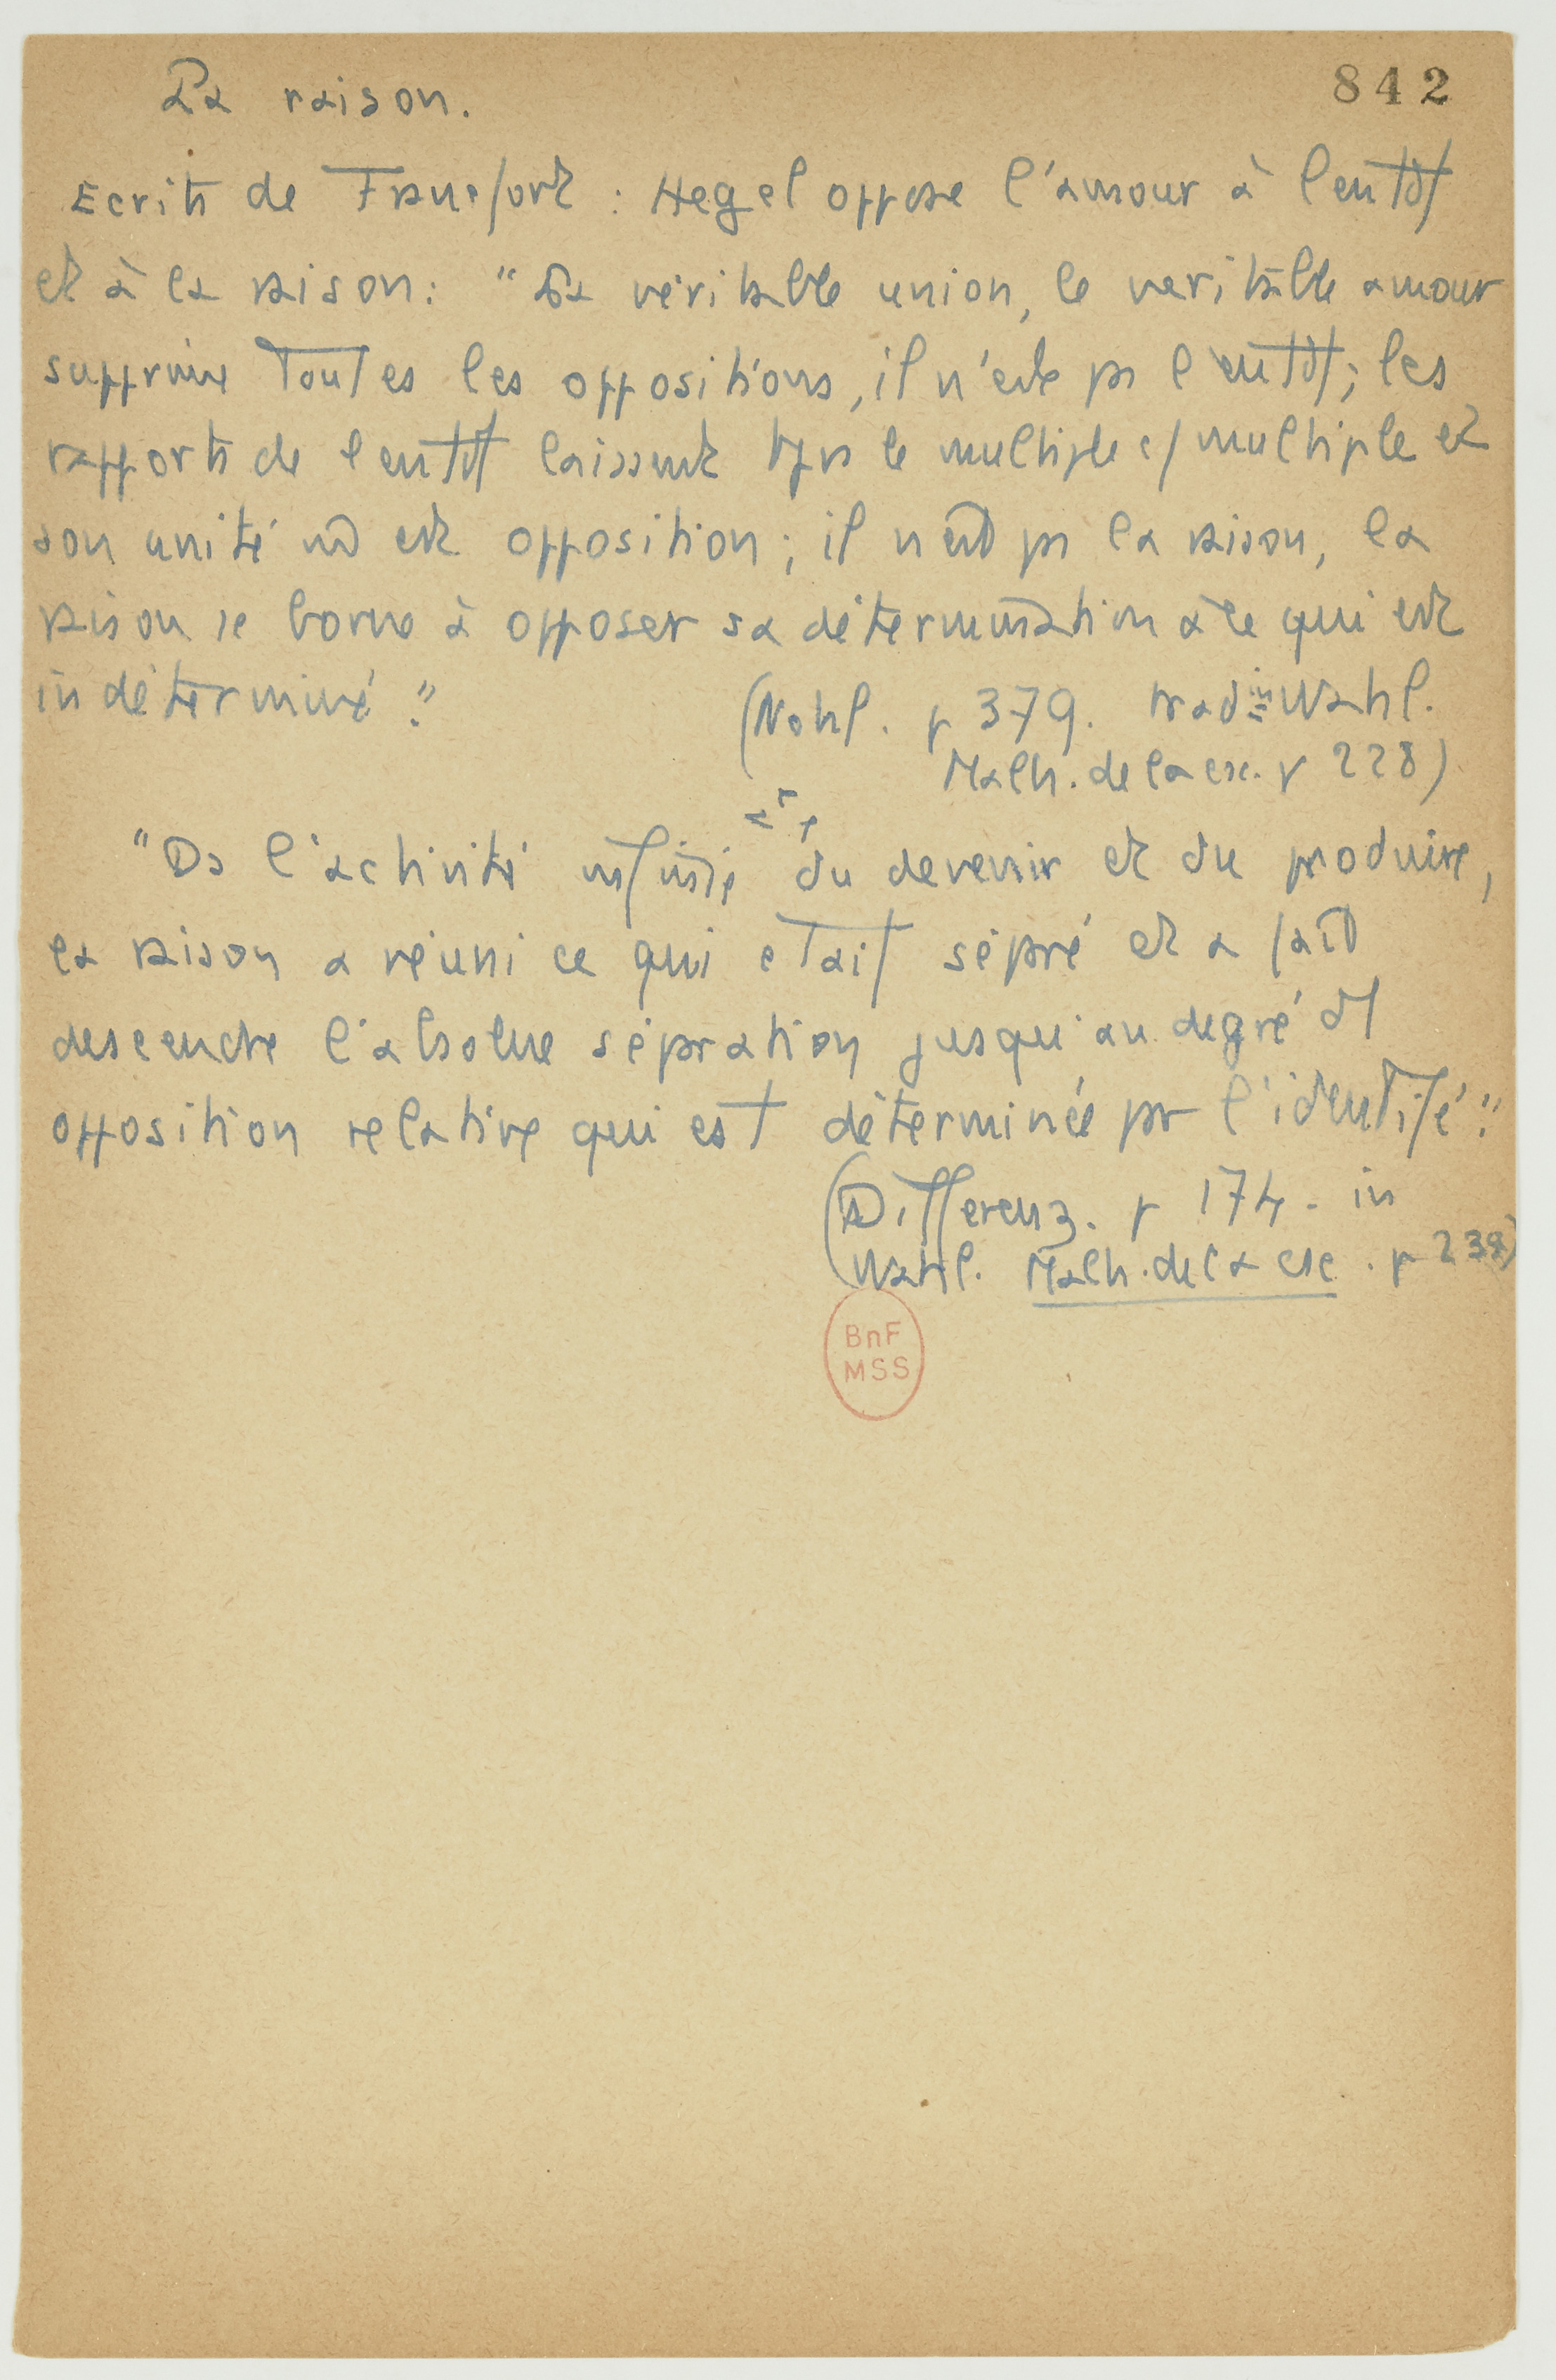 La raison.
842
Ecrits de Francfort : Hegel oppose l'amour à l'entdt
et à la raison : "La véritable union, le véritable amour
supprime toutes les oppositions, il n'est ps l'entdt ; les
rapports de l'entdt laissent tjrs le multiple c/ multiple et
son unité est opposition ; il n'est ps la raison, la
raison se borne à opposer sa détermination à ce qui est
indéterminé."
(Nohl. p 379. trad in Wahl.
Malh. de la csc. p 228)
"Ds l'activité infinie du devenir et du produire,
la raison a réuni ce qui etait séparé et a fait
descendre l'absolue séparation jusqu'au degré d'
opposition relative qui est déterminée par l'identité."
(Differenz. p 174. in
Wahl. Malh. de la csc. p 238)
BnF
MSS